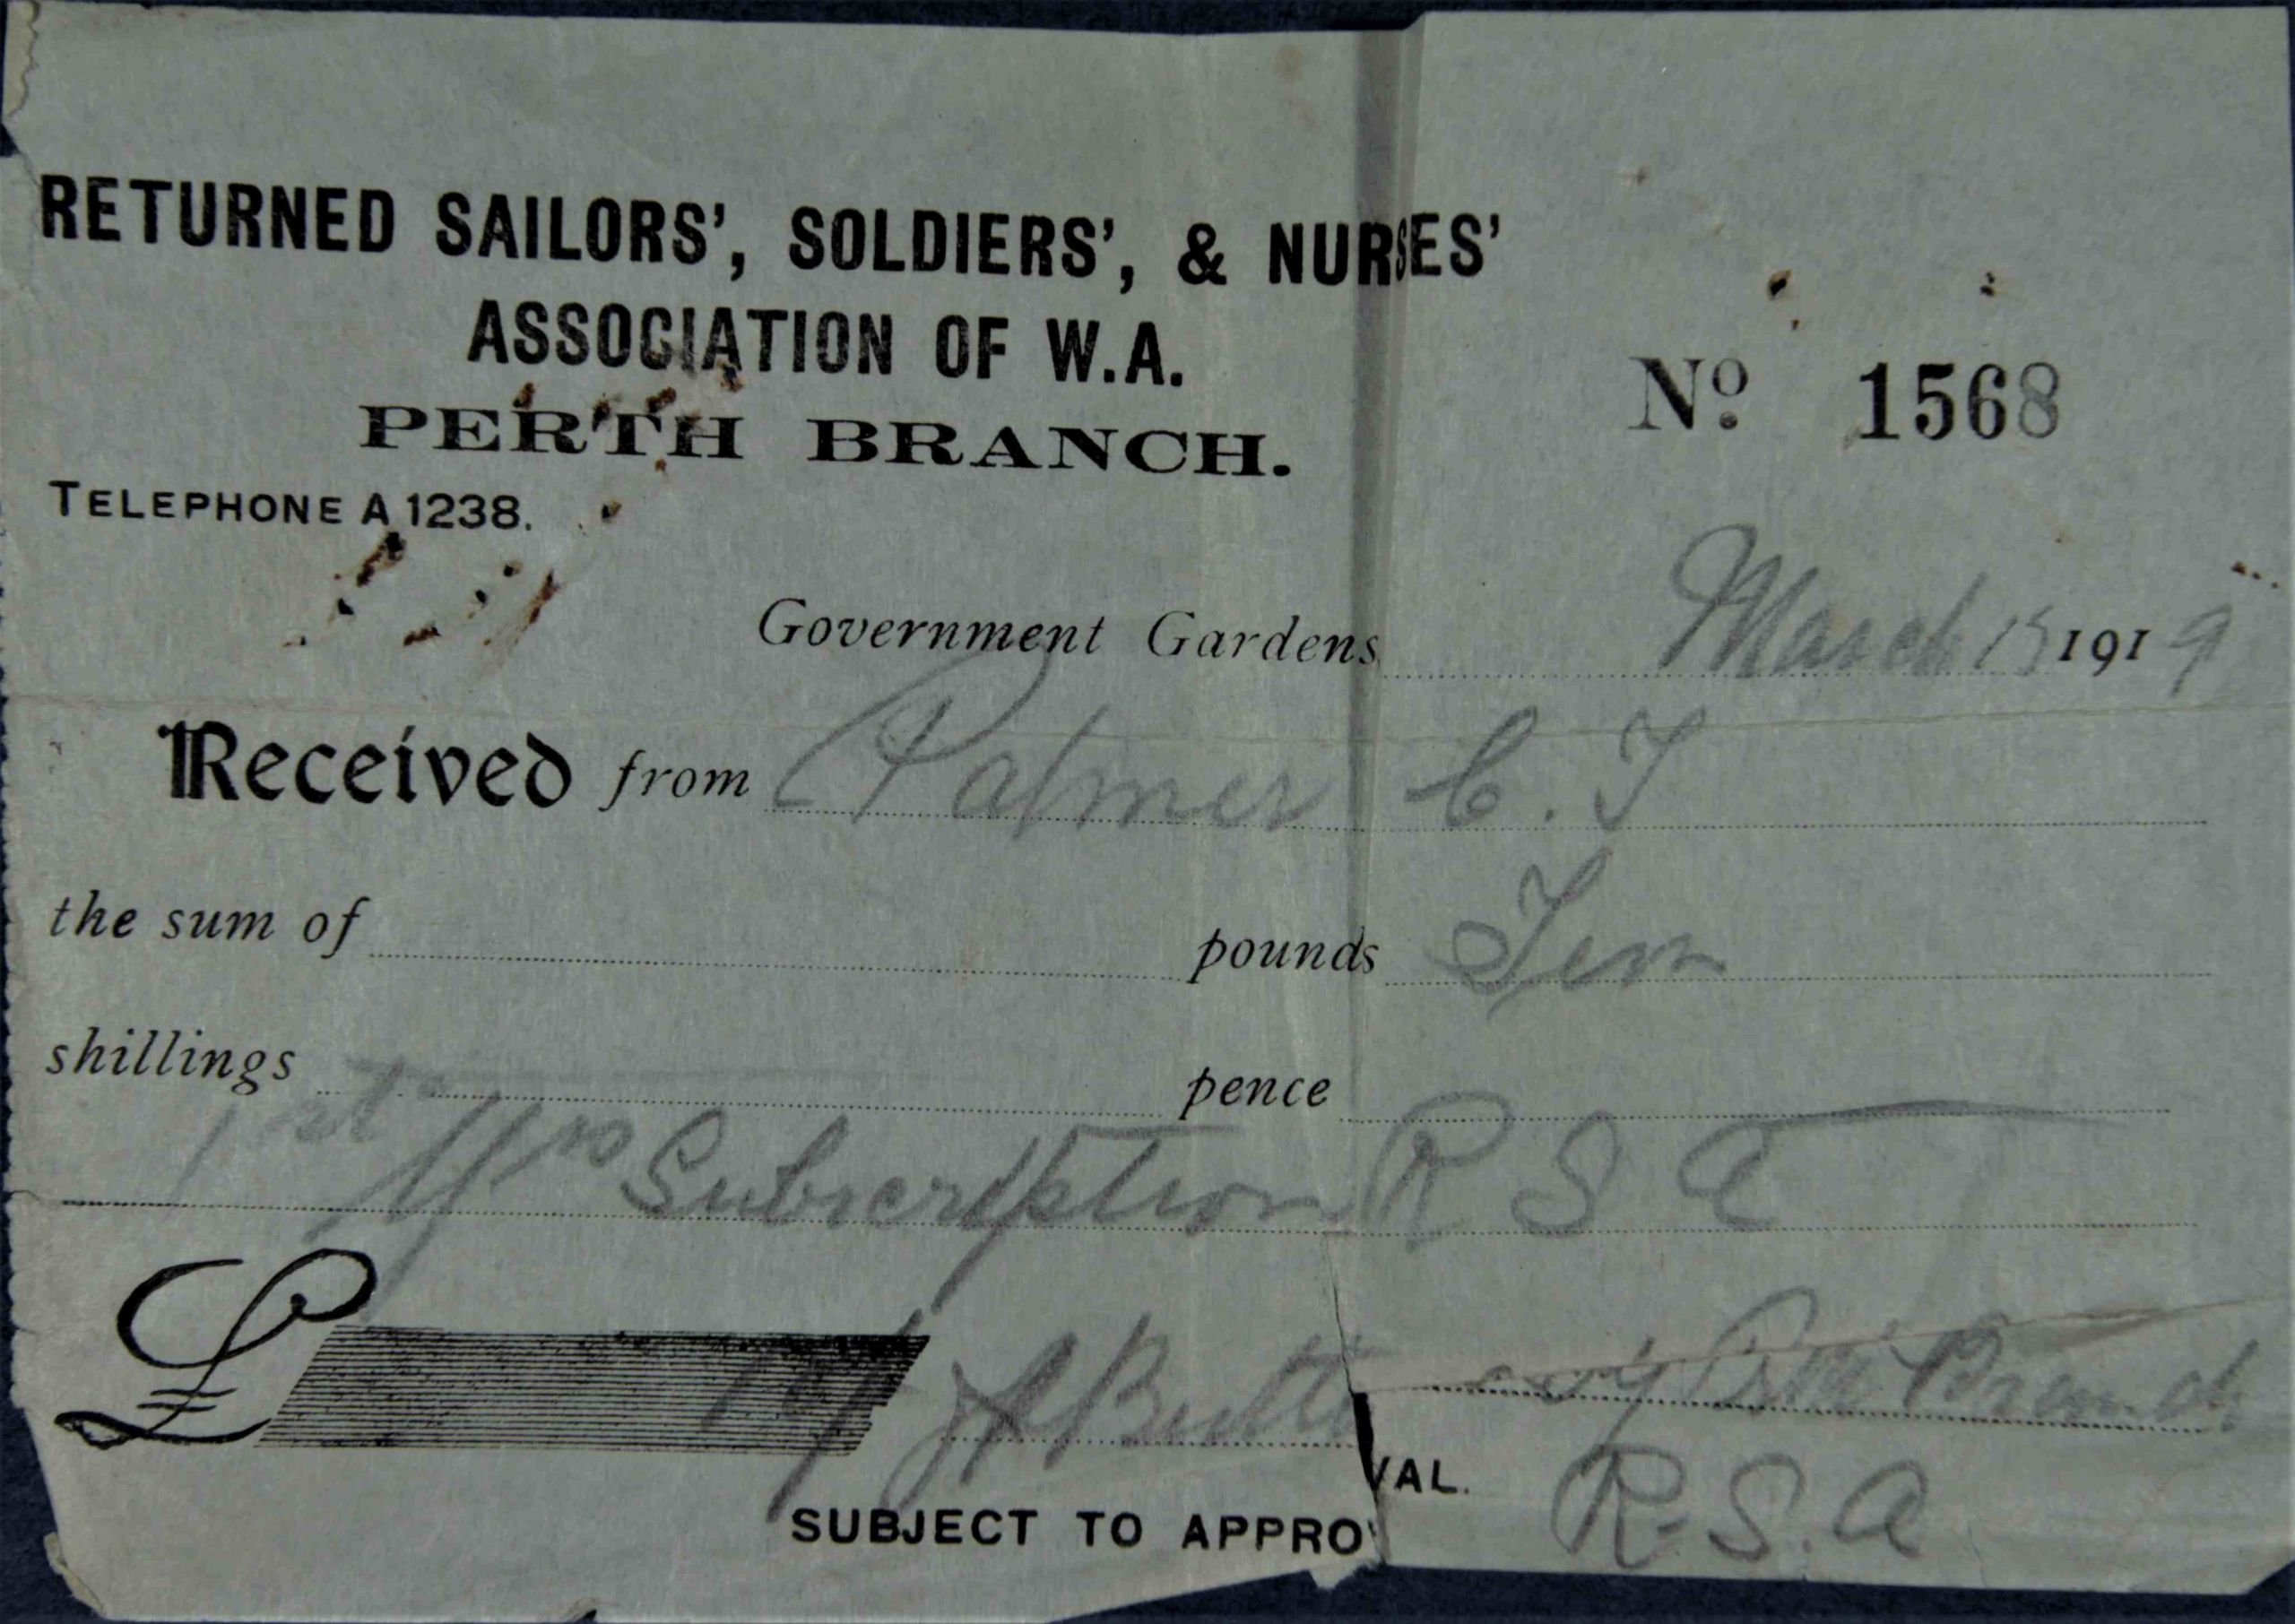 RETURNED SAILORS', SOLDIERS', & NURSES'
ASSOCIATION OF W.A.
PERTH BRANCH.
Nº 1568
TELEPHONE A 1238.
Government Gardens March 15 1919
Received from Palmer C. T
the sum of pounds Ten
shillings pence
1st Yrs Subscription R S A
£ 10/ Perth Branch
SUBJECT TO APPROVAL. R.S.A